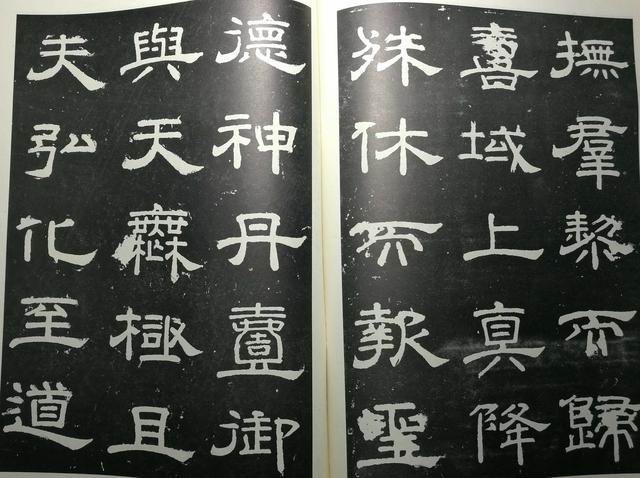 撫羣黎而歸
壽域上真降
殊休而報聖
德神丹壽御
與天無極且
夫弘化至道